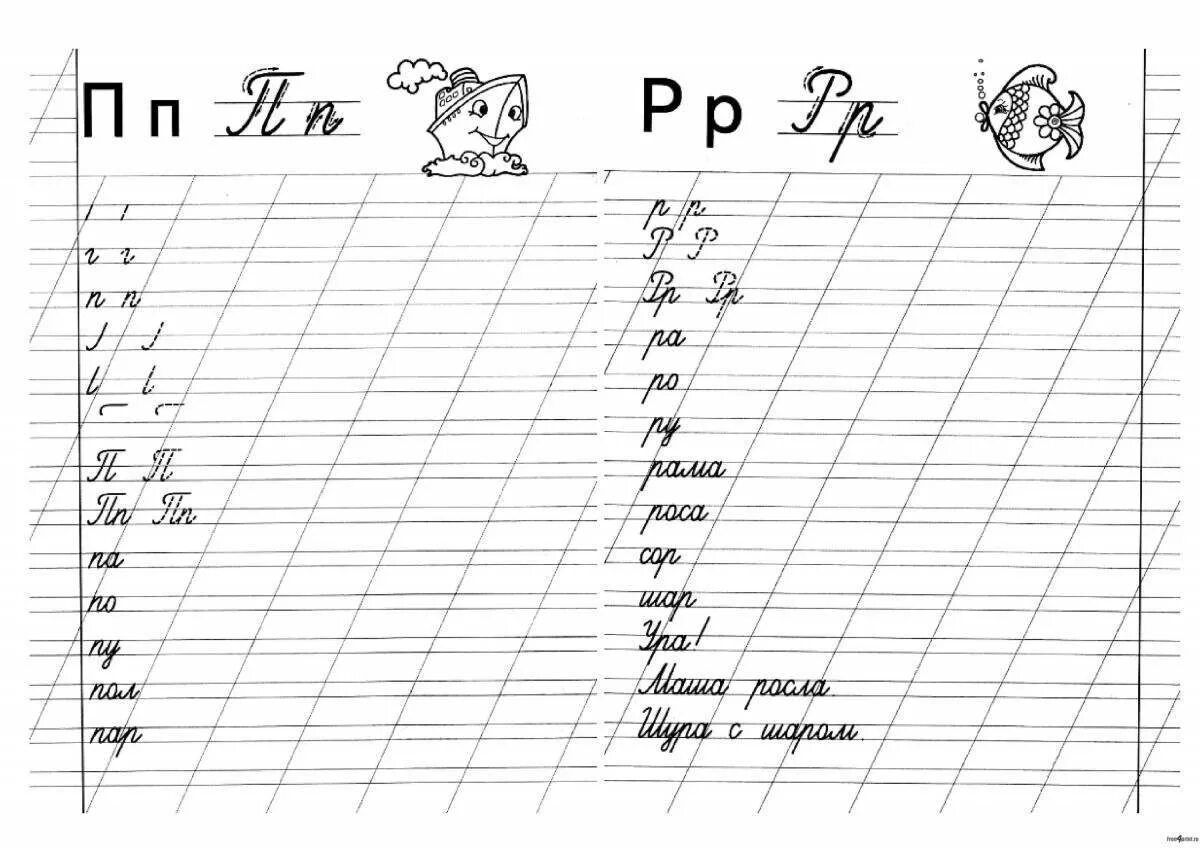 П п П п
г г
п п
П П
Пп Пп
па
по
пу
пол
пар
Р р Р р
р р
Р Р
Рр Рр
ра
ро
ру
рама
роса
сор
шар
Ура!
Маша росла
Шура с шаром.
free4print.ru